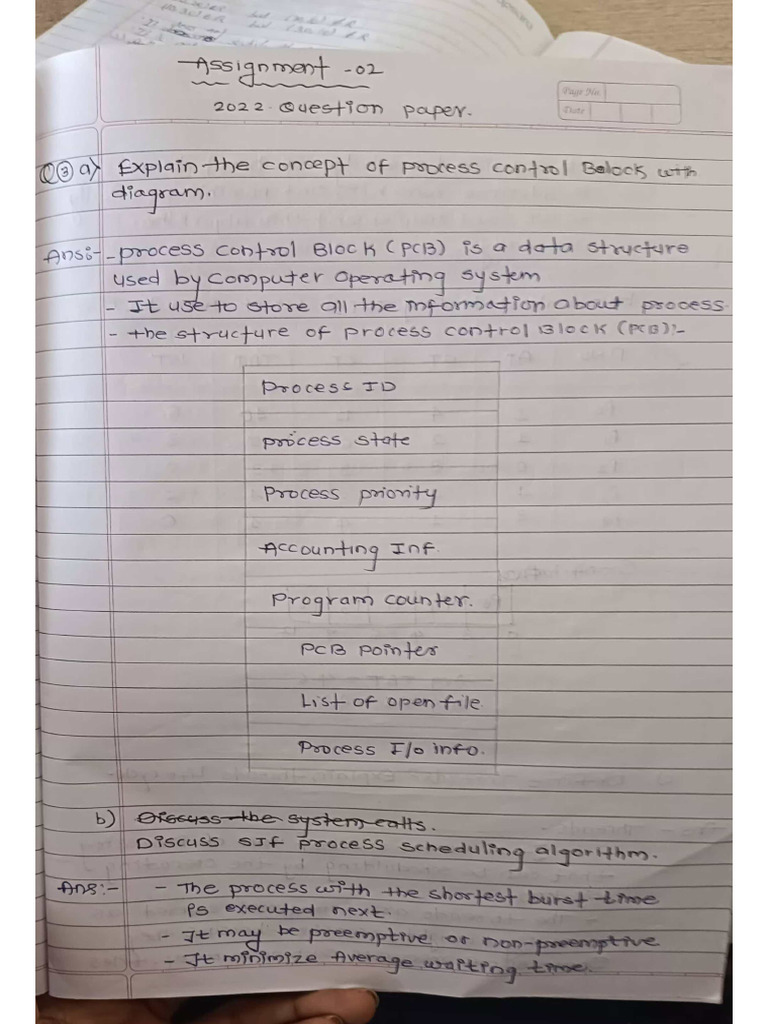 Assignment -02
2022. Question paper.
Page No
Date
Q③ a) Explain the concept of process control Belock with
diagram.
Ans:- - process control Block (PCB) is a data structure
used by computer operating system
- It use to store all the information about process.
- the structure of process control Block (PCB):-
Process ID
process state
Process priority
Accounting Inf.
Program counter.
PCB pointer
List of open file.
Process I/o info.
b) Discuss the system calls.
Discuss SJf process scheduling algorithm.
Ans:- - The process with the shortest burst time
is executed next.
- It may be preemptive or non-preemptive
- It minimize Average waiting time.